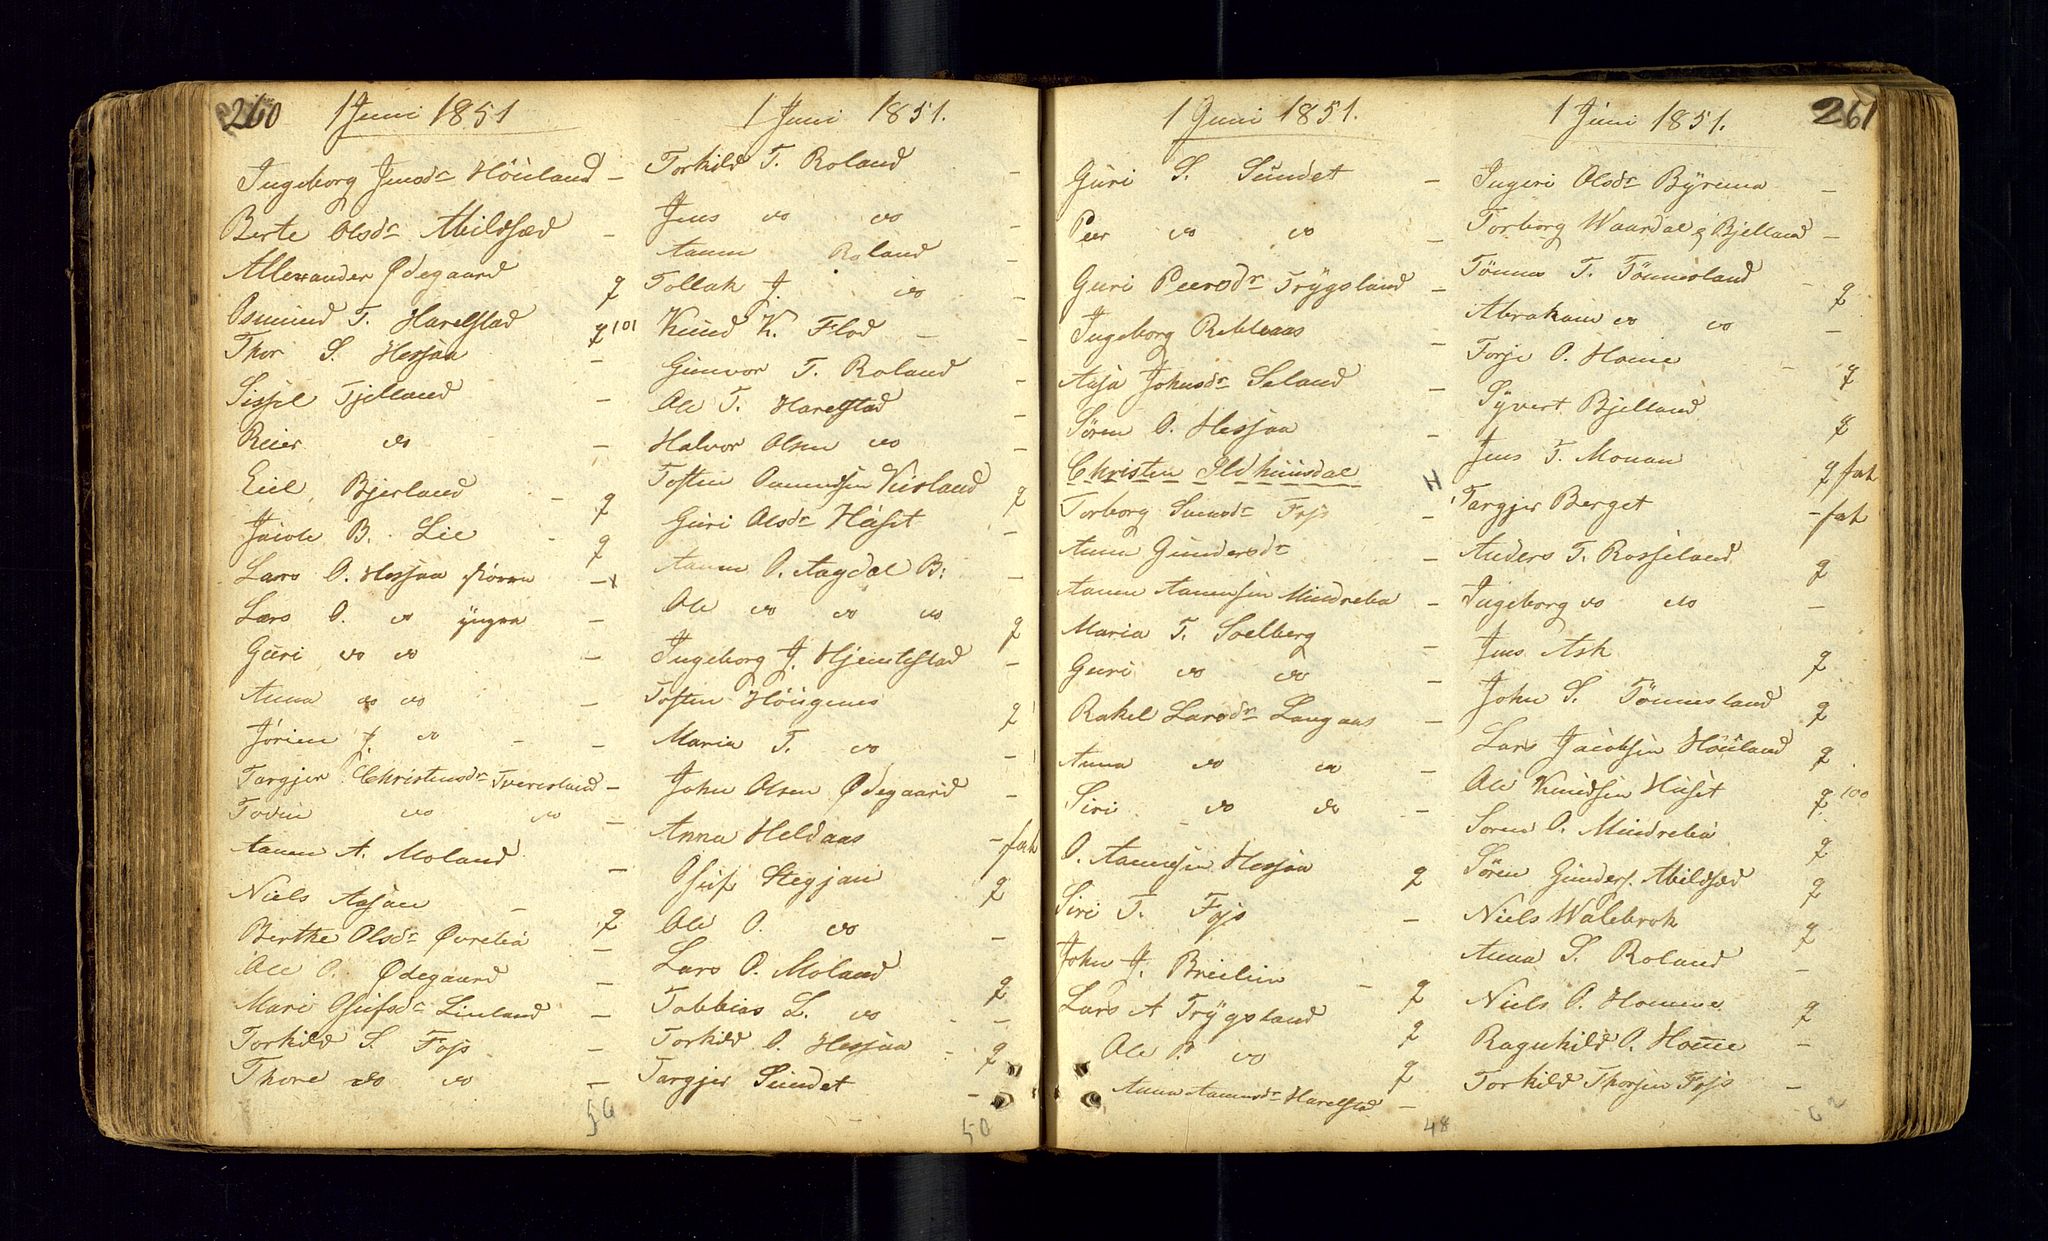 260
1 Juni 1851
Ingeborg Jensdr Höiland –
Berte Olsdr Abildsæd –
Allexander Ødegaard q
Osmund T. Harelstad q 101
Thor S. Hessaa –
Sissel Fjelland –
Reier do –
Eiel Bjerland – q
Jacob B. Lie – q
Lars O. Hessaa större –
Lars O. do yngre –
Guri do do –
Anna do do –
Jörien J. do – –
Targjer Christensdr Tveresland –
Todne do do –
Aanen A. Moland –
Niels Aasan – q
Berthe Olsdr Øvrebø –
Ole O. Ødegaard –
Mari Osufsdr Linland –
Torkild S. Foss –
Thore do do –
50
1 Juni 1851.
Torkild T. Roland –
Jens do do –
Aanen Roland –
Tollak J. do –
Knud K. Flod – –
Gunvor T. Roland –
Ole T. Harelstad –
Halvor Olsen do –
Tosten Aanensen Kirland q
Guri Olsdr Huset –
Aanen O. Aagdal B: –
Ole do do do q
Ingeborg J. Hjemlestad –
Tosten Höigenes q
Maria T. do –
John Olsen Ødegaard –
Anna Heldaas – fat
Osuf Stegjan q
Ole O. do –
Lars O. Moland q
Tobbias L. do – –
Torkild O. Hessaa – q
Targjer Sundet –
50
1 Juni 1851.
Guri S. Sundet –
Peer do do –
Guri Peersdr Trygsland –
Ingeborg Reblaas –
Aasa Johnsdr Saland –
Sören O. Hessaa –
Christen Ildhuusdal H
Torborg Svensdr Foss –
Anna Gundersdr –
Aanen Aanensen Mindrebø –
Maria T. Solberg –
Guri do do –
Rakel Larsdr Langaas –
Anna do do –
Siri do do –
O. Aanensen Hessaa q
Siri T. Foss –
John J. Breilien – q
Lars A Trygsland q
Ole P. do q
Anna Aanensdr Harelstad –
48
1 Juni 1851.
261
Ingeri Olsdr Byrema –
Torborg Waardal & Bjelland –
Tönnes T. Tönnesland – q
Abraham do do –
Torje O. Home – q
Syvert Bjelland q
Jens T. Monan q fat
Targjer Berget – fat
Anders T. Rosseland q
Ingeborg do do –
Jens Ask q
John S. Tönnesland q
Lars Jacobsen Höiland q
Ole Knudsen Huset q 100
Soren O. Mindrebø q
Sören Gunders. Abildsæd q
Niels Walebrok q
Anna S. Roland –
Niels O. Homme q
Ragnhild O. Home –
Torkild Thorsen Foss –
62